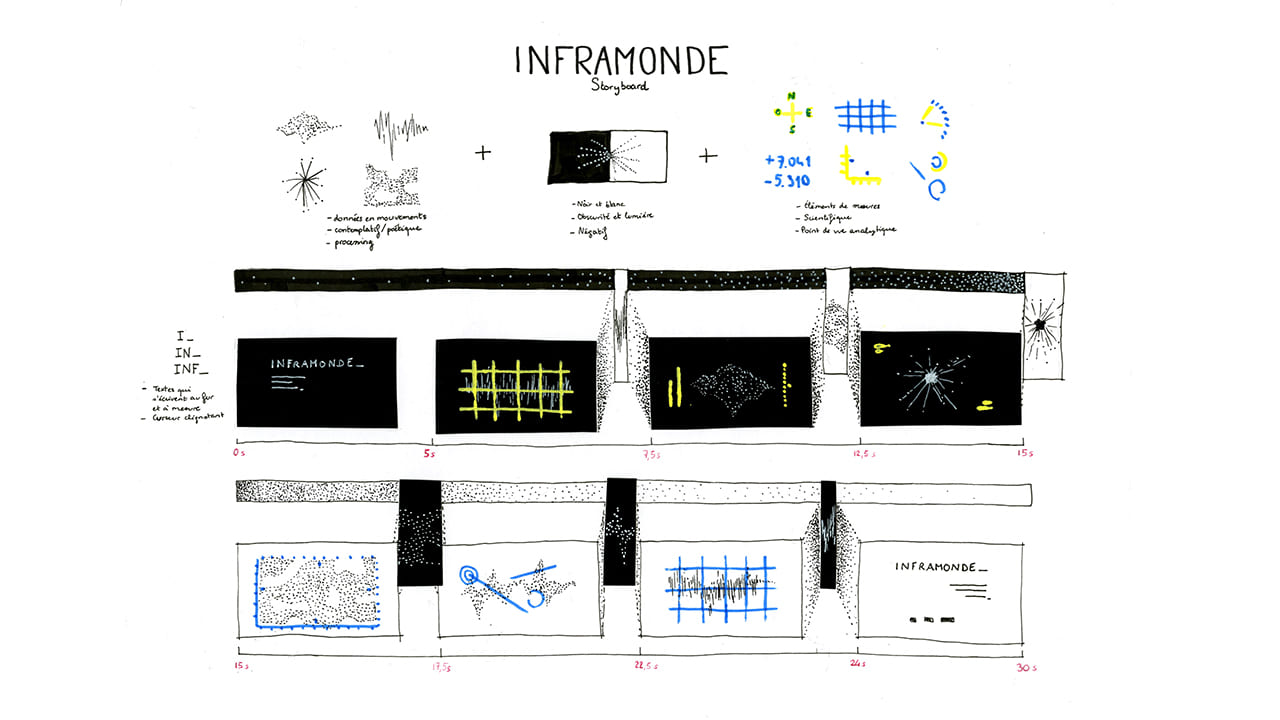 INFRAMONDE
Storyboard
N
O E
S
+7.041
-5.310
- données en mouvements
- contemplatif/poétique
- processing
- Noir et blanc
- Obscurité et lumière
- Négatif
- Éléments de mesures
- Scientifique
- Point de vue analytique
I_
IN_
INF_
- Textes qui
s'écrivent au fur
et à mesure
- Curseur clignotant
INFRAMONDE_
0s
5s
7,5s
12,5s
15s
INFRAMONDE_
15s
17,5s
22,5s
24s
30s